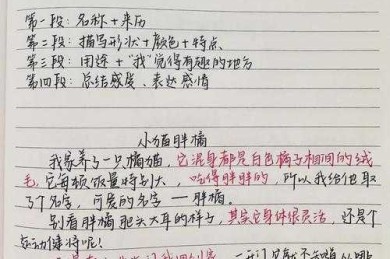 第一段:名称+来历
第二段:描写形状+颜色+特点
第三段:用途+"我"觉得有趣的地方
第四段:总结感受、表达感情
小猫胖橘
我家养了一只橘猫,它混身都是白色橘子相间的绒
毛,它每顿饭量特别大,吃得胖胖的,所以我给他取
了个名字,可爱的名字——胖橘。
别看胖橘肥头大耳的样子,其实它身体很灵活,还是个
运动健将呢!